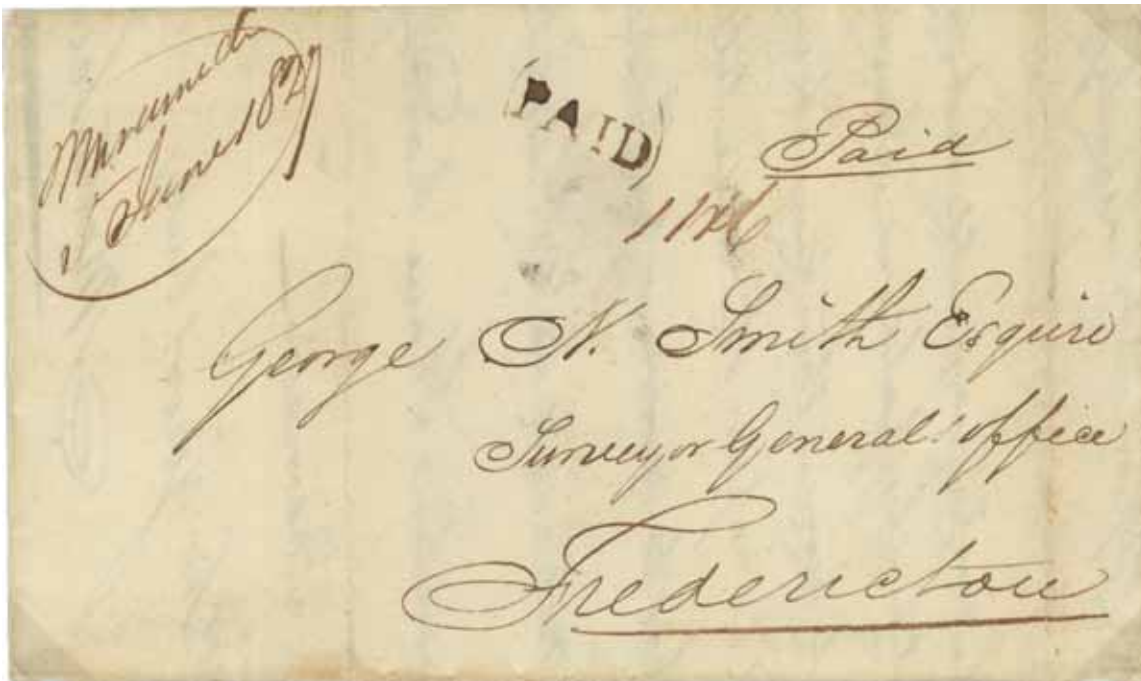 Miramichi
June
PAID
Paid
George N. Smith Esquire
Surveyor General's office
Fredericton